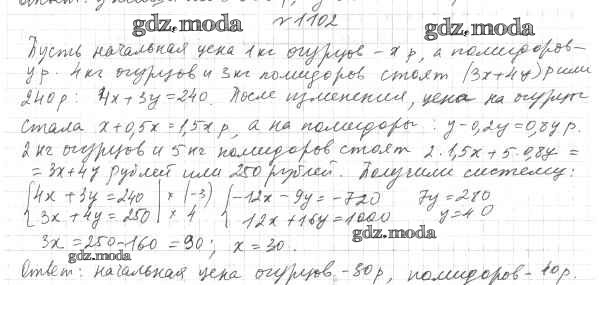 №1102
gdz.moda gdz.moda
Пусть начальная цена 1 кг огурцов – x р, а помидоров –
y р. 4 кг огурцов и 3 кг помидоров стоят (3x+4y) р или
240 р: 4x+3y=240. После изменения, цена на огурцы
стала x+0,5x=1,5x р, а на помидоры: y-0,2y=0,8y р.
2 кг огурцов и 5 кг помидоров стоят 2·1,5x+5·0,8y =
= 3x+4y рублей или 250 рублей. Получили систему:
{4x+3y=240 | × (-3) {-12x-9y=-720 7y=280
{3x+4y=250 | × 4 {12x+16y=1000 y=40
3x=250-160=90; x=30.
gdz.moda
gdz.moda
Ответ: начальная цена огурцов -30р, помидоров - 40р.